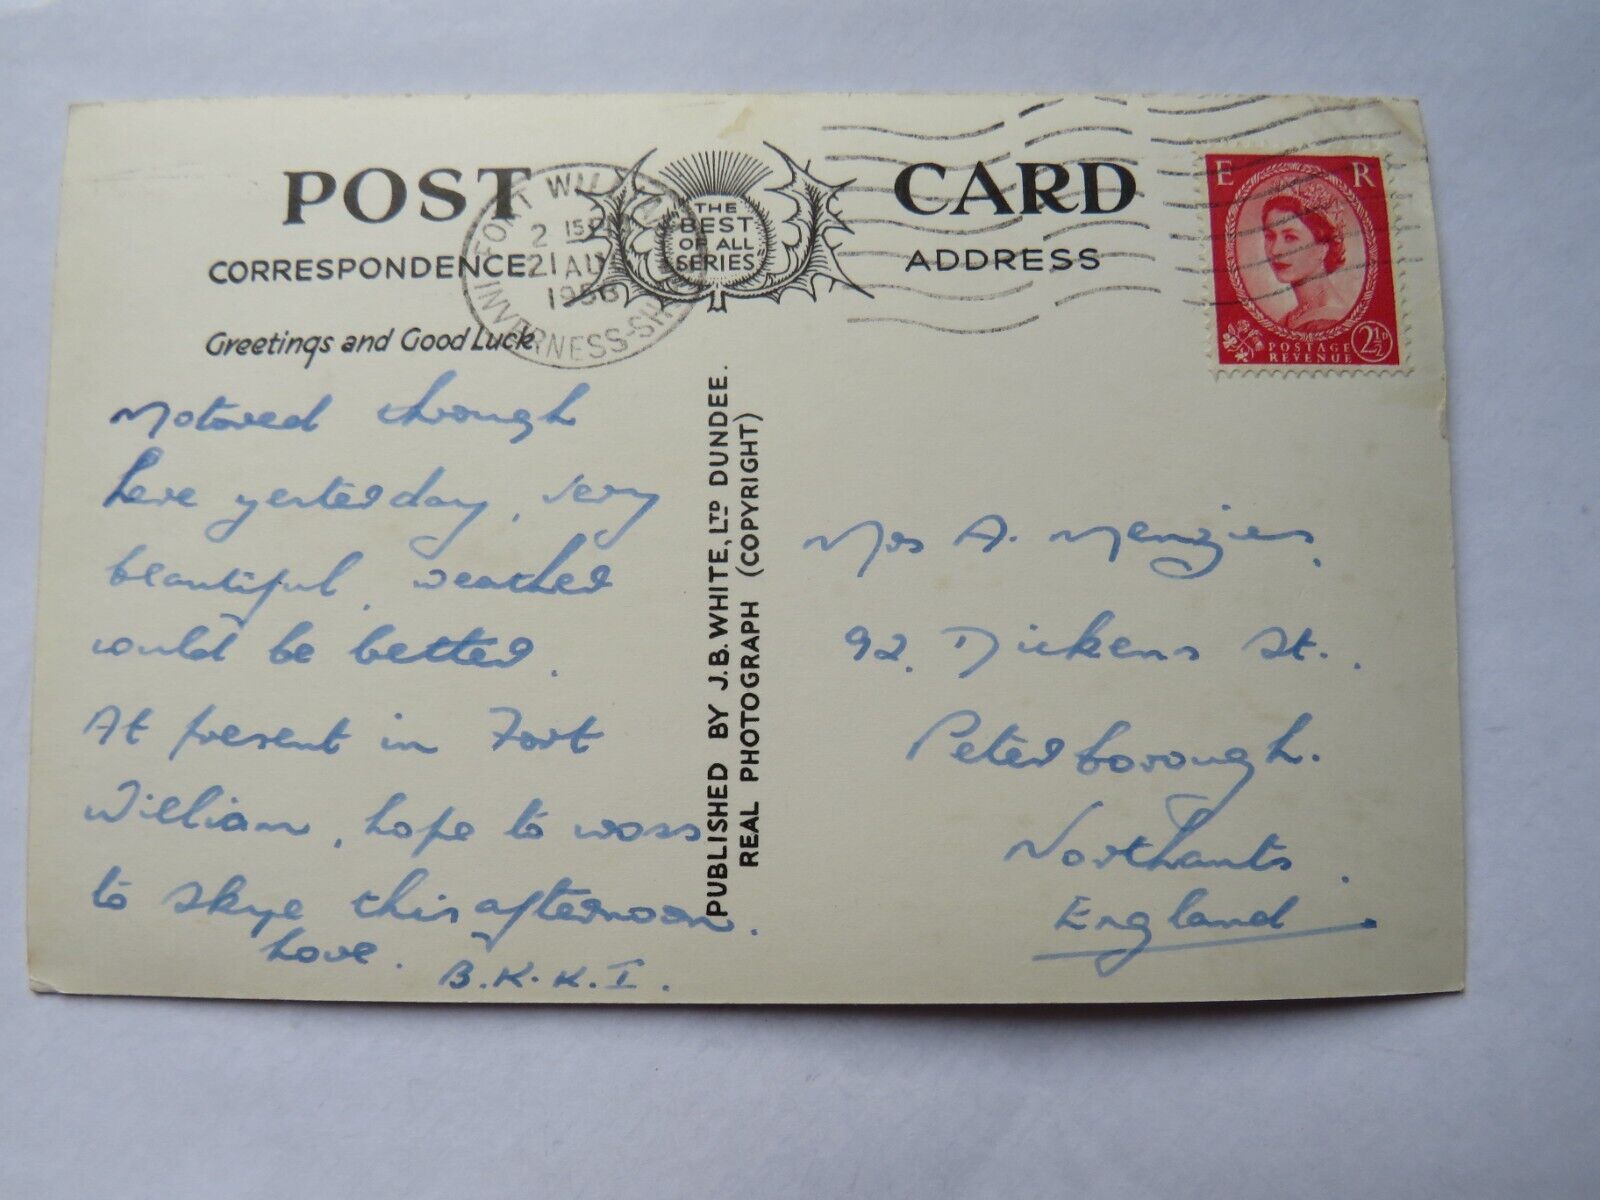 POST CARD
THE
BEST
OF ALL
SERIES
CORRESPONDENCE
ADDRESS
Greetings and Good Luck
FORT WILLIAM
2 15 PM
21 AU
1956
INVERNESS-SHIRE
E R
POSTAGE
REVENUE
2½D
Motored through
here yesterday, very
beautiful, weather
could be better.
At present in Fort
William, hope to cross
to Skye this afternoon.
Love.
B.K.K.I.
PUBLISHED BY J.B. WHITE, LTD DUNDEE.
REAL PHOTOGRAPH (COPYRIGHT)
Mrs A. Menzies,
92, Dickens St.,
Peterborough.
Northants.
England